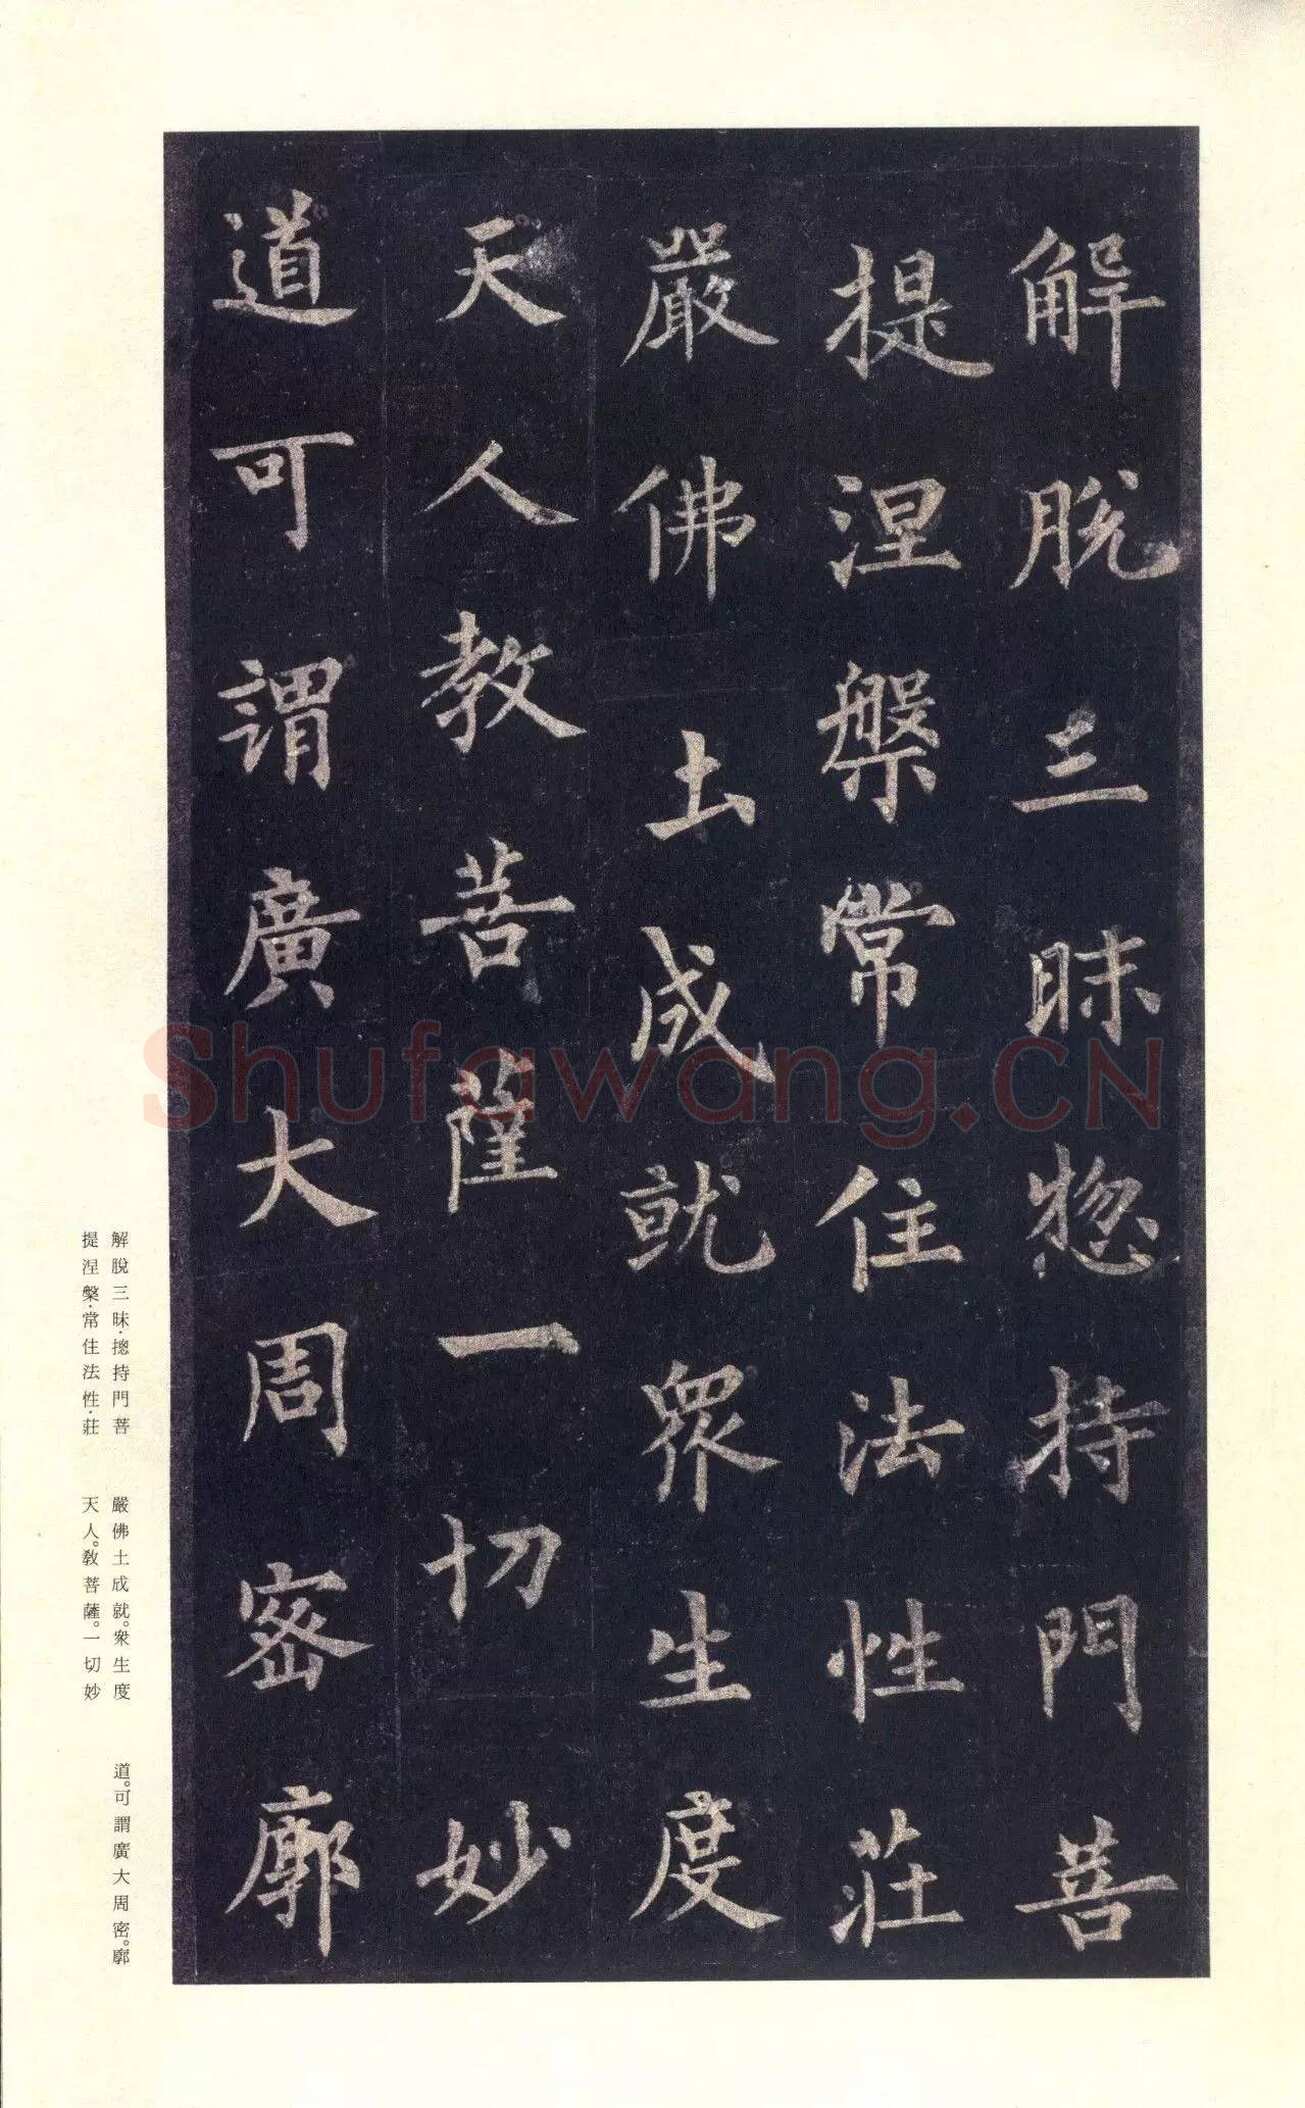 解脫三昧惣持門菩
提涅槃常住法性莊
嚴佛土成就眾生度
天人教菩薩一切妙
道可謂廣大周密廓
解脫三昧·摠持門菩
提涅槃·常住法性·莊
嚴佛土成就。衆生度
天人。敎菩薩。一切妙
道。可謂廣大周密。廓
Shufawang.CN